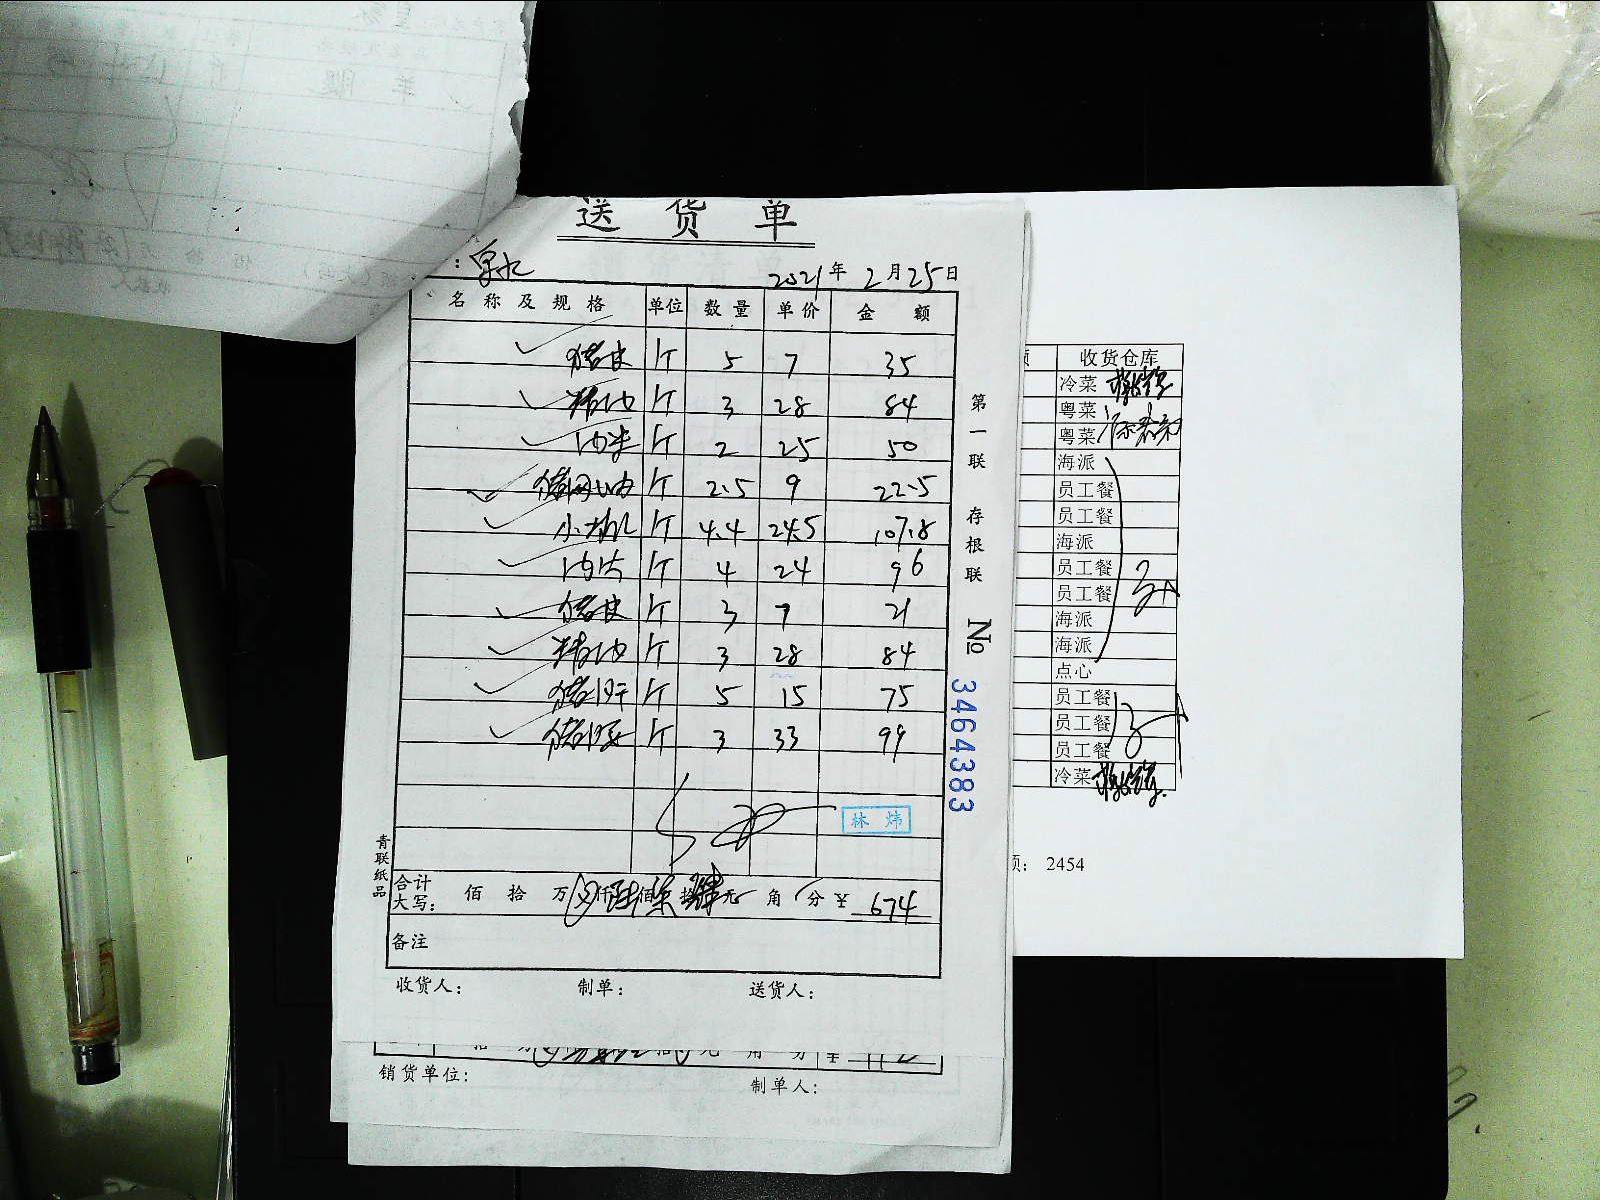 送货单
2021年2月25日
名称及规格 单位 数量 单价 金额
猪皮 斤 5 7 35
精肉 斤 3 28 84
肉米 斤 2 25 50
猪网油 斤 2.5 9 22.5
小排 斤 4.4 24.5 107.8
肉片 斤 4 24 96
猪皮 斤 3 7 21
精肉 斤 3 28 84
猪肝 斤 5 15 75
猪腰 斤 3 33 99
林炜
合计
大写: 佰拾万仟陆佰柒拾肆元角分¥ 674
备注
收货人: 制单: 送货人:
第一联 存根联
№ 3464383
青联纸品
销货单位: 制单人:
额 收货仓库
冷菜
粤菜
粤菜
海派
员工餐
员工餐
海派
员工餐
员工餐
海派
海派
点心
员工餐
员工餐
员工餐
冷菜
2454